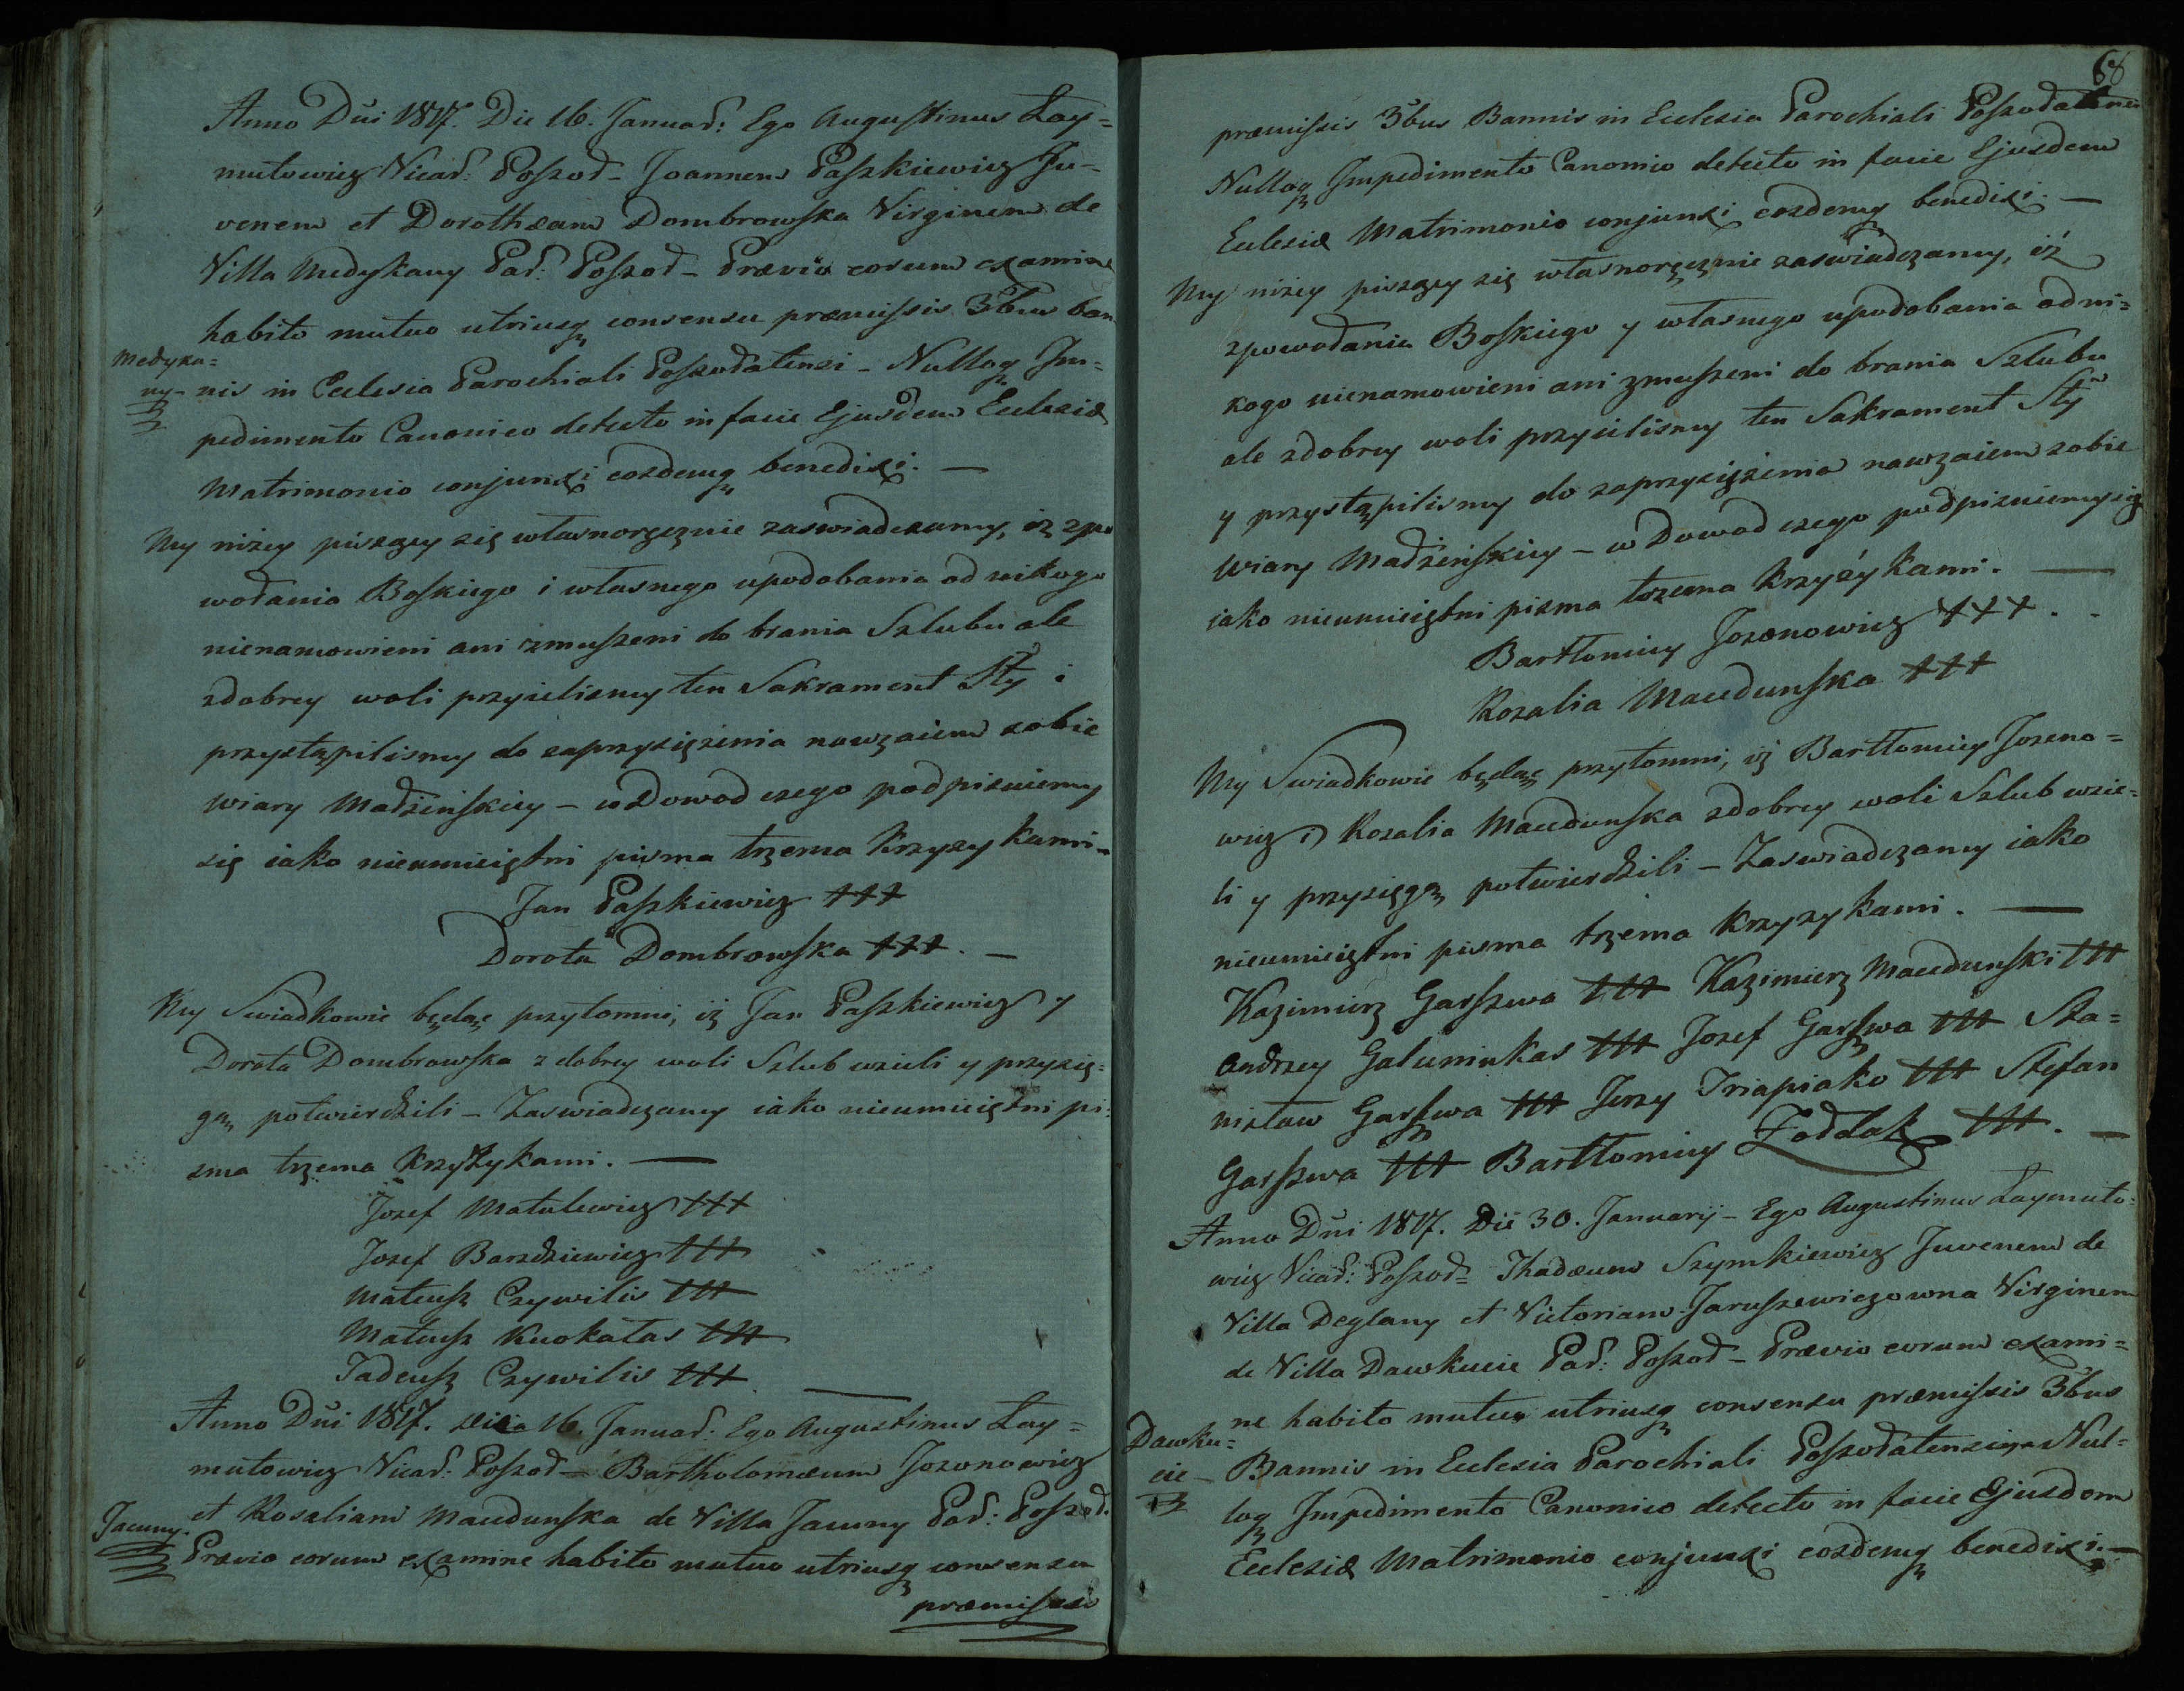 Anno Dñi 1817. Die 16. Januar: Ego Augustinus Łay=
mutowicz Vicar: Poszod- Joannem Paszkiewicz Ju-
venem et Dorothæam Dombrowska Virginem de
Villa Medykany Par: Poszod- Prævio eorum examine
habito mutuo utriusq consensu præmissis 3bus ban
Medyka=
ny-
nis in Ecclesia Parochiali Poszodatensi - Nulloq Im=
pedimento Canonico detecto in facie Ejusdem Ecclesiæ
Matrimonio conjunxi eosdemq benedixi. —
My niżey piszący się własnoręcznie zaswiadczamy, iż zpo
wodania Boskiego i własnego upodobania od nikogo
nienamowieni ani zmuszeni do brania Szlubu ale
zdobrey woli przyielismy ten Sakrament Sty i
przystąpilismy do zaprzysięzenia nawzaiem sobie
wiary Madżeńskiey - w Dowod czego podpisuiemy
się iako nieumieiętni pisma trzema Krzyzykami -
Jan Paszkiewicz +++
Dorota Dombrowska +++. —
My Swiadkowie będąc przytomni, iż Jan Paszkiewicz y
Dorota Dombrowska z dobrey woli Szlub wzieli y przysię=
gą potwierdzili - Zaswiadczamy iako nieumieiętni pi=
sma trzema Krzyżykami. —
Jozef Matulewicz +++
Jozef Barsdziewicz +++
Mateusz Czywilis +++
Mateusz Kuokałas +++
Tadeusz Czywilis +++. —
Anno Dñi 1817. 16. Januar: Ego Augustinus Łay=
mutowicz Vicar: Poszod- Bartholomæum Jozonowicz
Jacuny.
et Rosaliam Maudunska de Villa Jacuny Par: Poszod.
Prævio eorum examine habito mutuo utriusq consensu
præmissis
68
præmissis 3bus Bannis in Ecclesia Parochiali
Nulloq Impedimento Canonico detecto in facie Ejusdem
Ecclesiæ Matrimonio conjunxi eosdemq benedixi. —
My niżey piszący się własnoręcznie zaswiadczamy, iż
zpowodania Boskiego y własnego upodobania od ni=
kogo nienamowieni ani zmuszeni do brania Szlubu
ale zdobrey woli przyielismy ten Sakrament Sty
y przystąpilismy do zaprzysięzenia nawzaiem sobie
wiary Madżeńskiey - w Dowod czego podpisuiemy się
iako nieumieiętni pisma trzema Krzyżykami. —
Bartłomiey Jozonowicz +++.
Rozalia Maudunska +++
My Swiadkowie będąc przytomni, iż Bartłomiey Jozono=
wicz i Rozalia Maudunska zdobrey woli Szlub wzie=
li y przysięgą potwierdzili - Zaswiadczamy iako
nieumieiętni pisma trzema Krzyzykami. —
Kazimierz Garszwa +++ Kazimierz Maudunski +++
Andrzey Galuminkas +++ Jozef Garszwa +++ Sta=
nisław Garszwa +++ Jerzy Triapiako +++ Stefan
Garszwa +++ Bartłomiey Żoddak +++. —
Anno Dñi 1817. Die 30. Januarij - Ego Augustinus Łaymuto=
wicz Vicar: Poszod= Thadæum Szymkiewicz Juvenem de
Villa Deglany et Victoriam Jaruszewiczowna Virginem
de Villa Dawkucie Par: Poszod- Prævio eorum exami=
ne habito mutuo utriusq consensu præmissis 3bus
Dawku=
cie -
Bannis in Ecclesia Parochiali Poszodatensi Nul=
loq Impedimento Canonico detecto in facie Ejusdem
Ecclesiæ Matrimonio conjunxi eosdemq benedixi. —